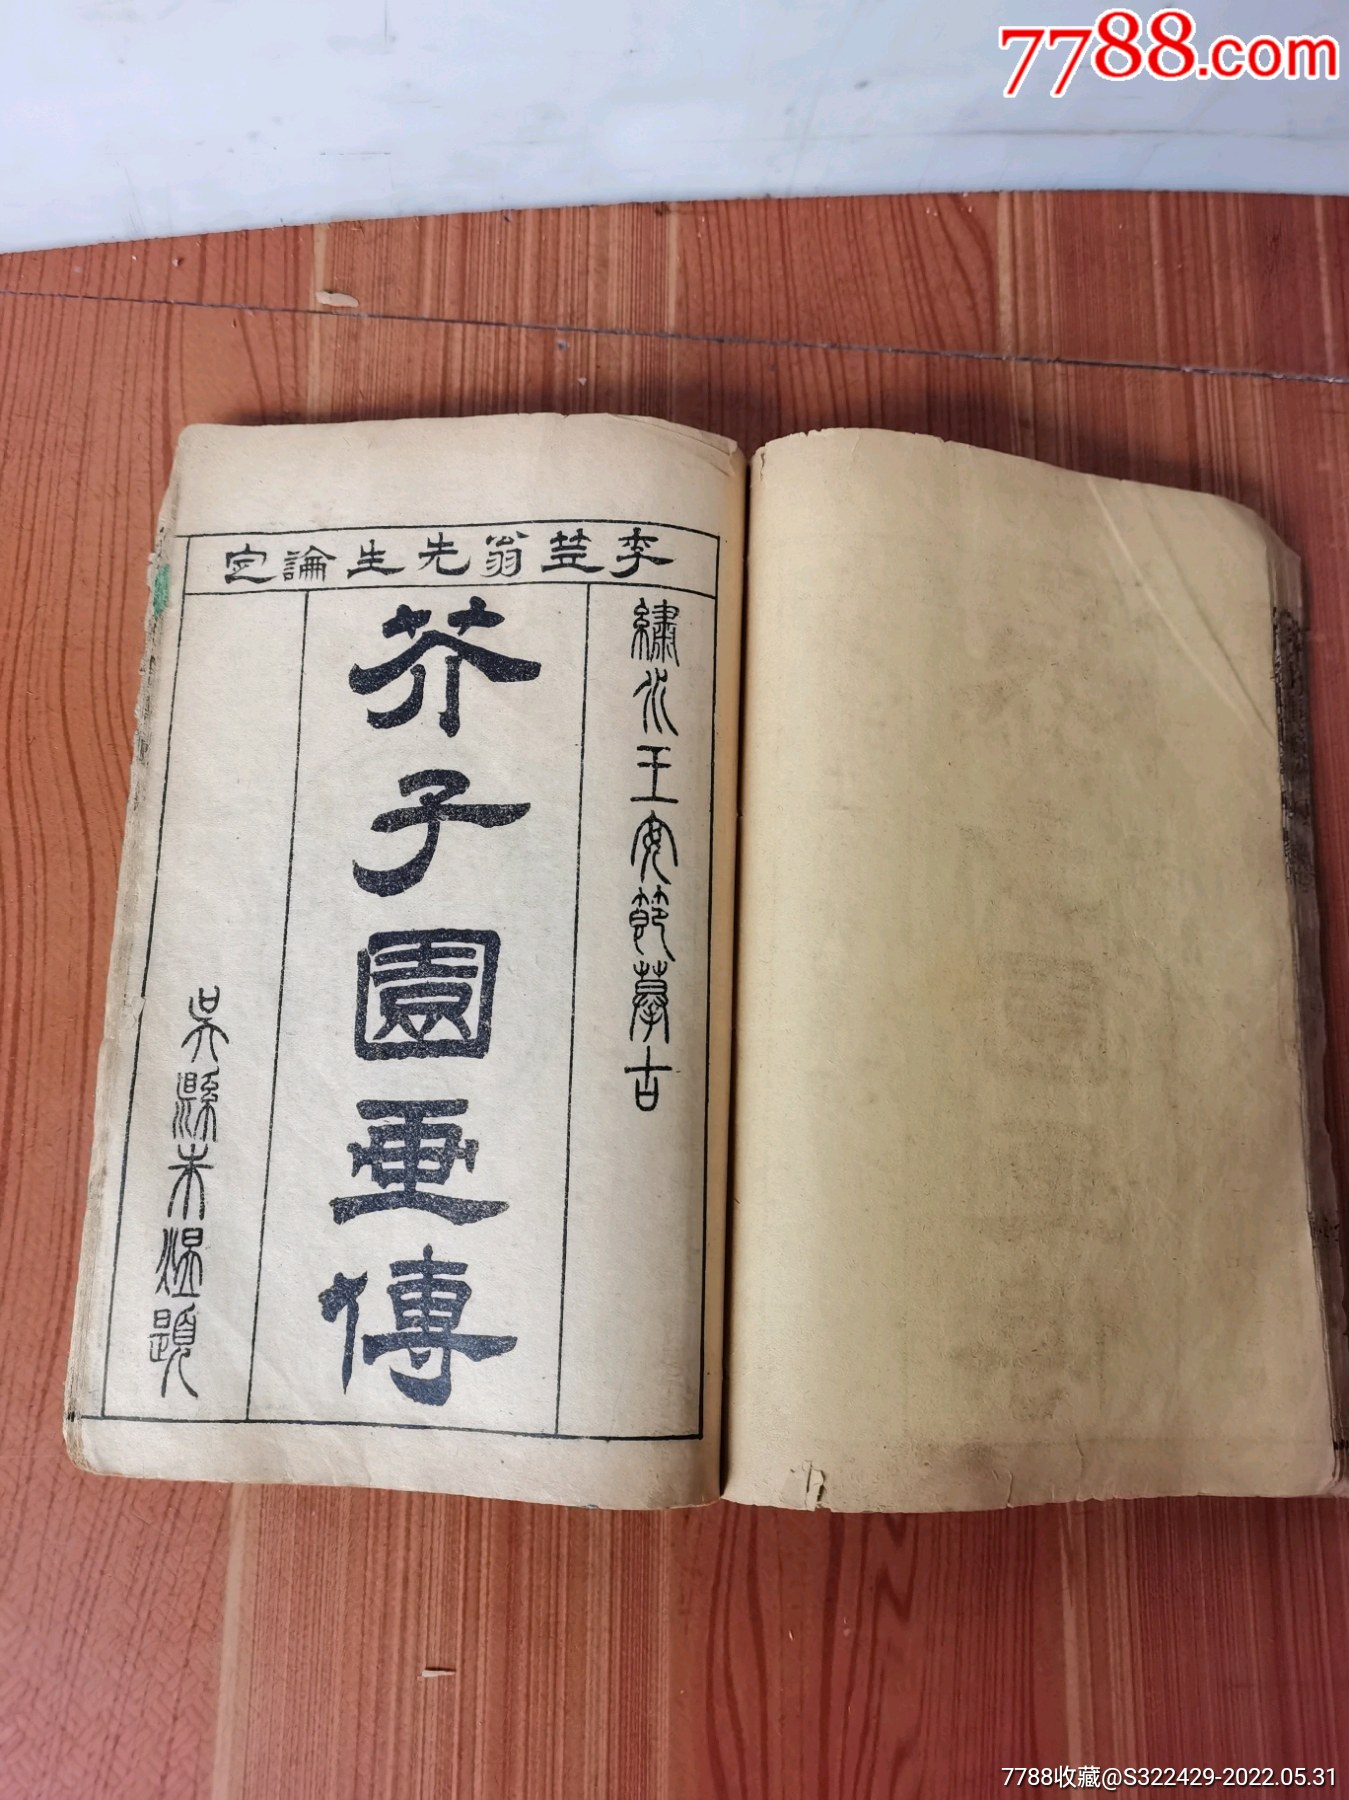 7788.com
李笠翁先生論定
繡水王安節摹古
芥子園畫傳
吳縣朱熅題
7788收藏@S322429-2022.05.31